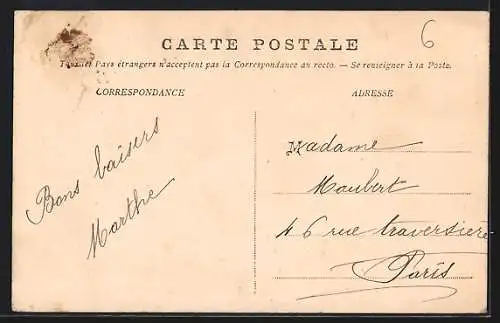 6
CARTE POSTALE
Tous les Pays étrangers n'acceptent pas la Correspondance au recto. — Se renseigner à la Poste.
CORRESPONDANCE
ADRESSE
Bons baisers
Marthe
Madame
Maubert
46 rue traversière
Paris